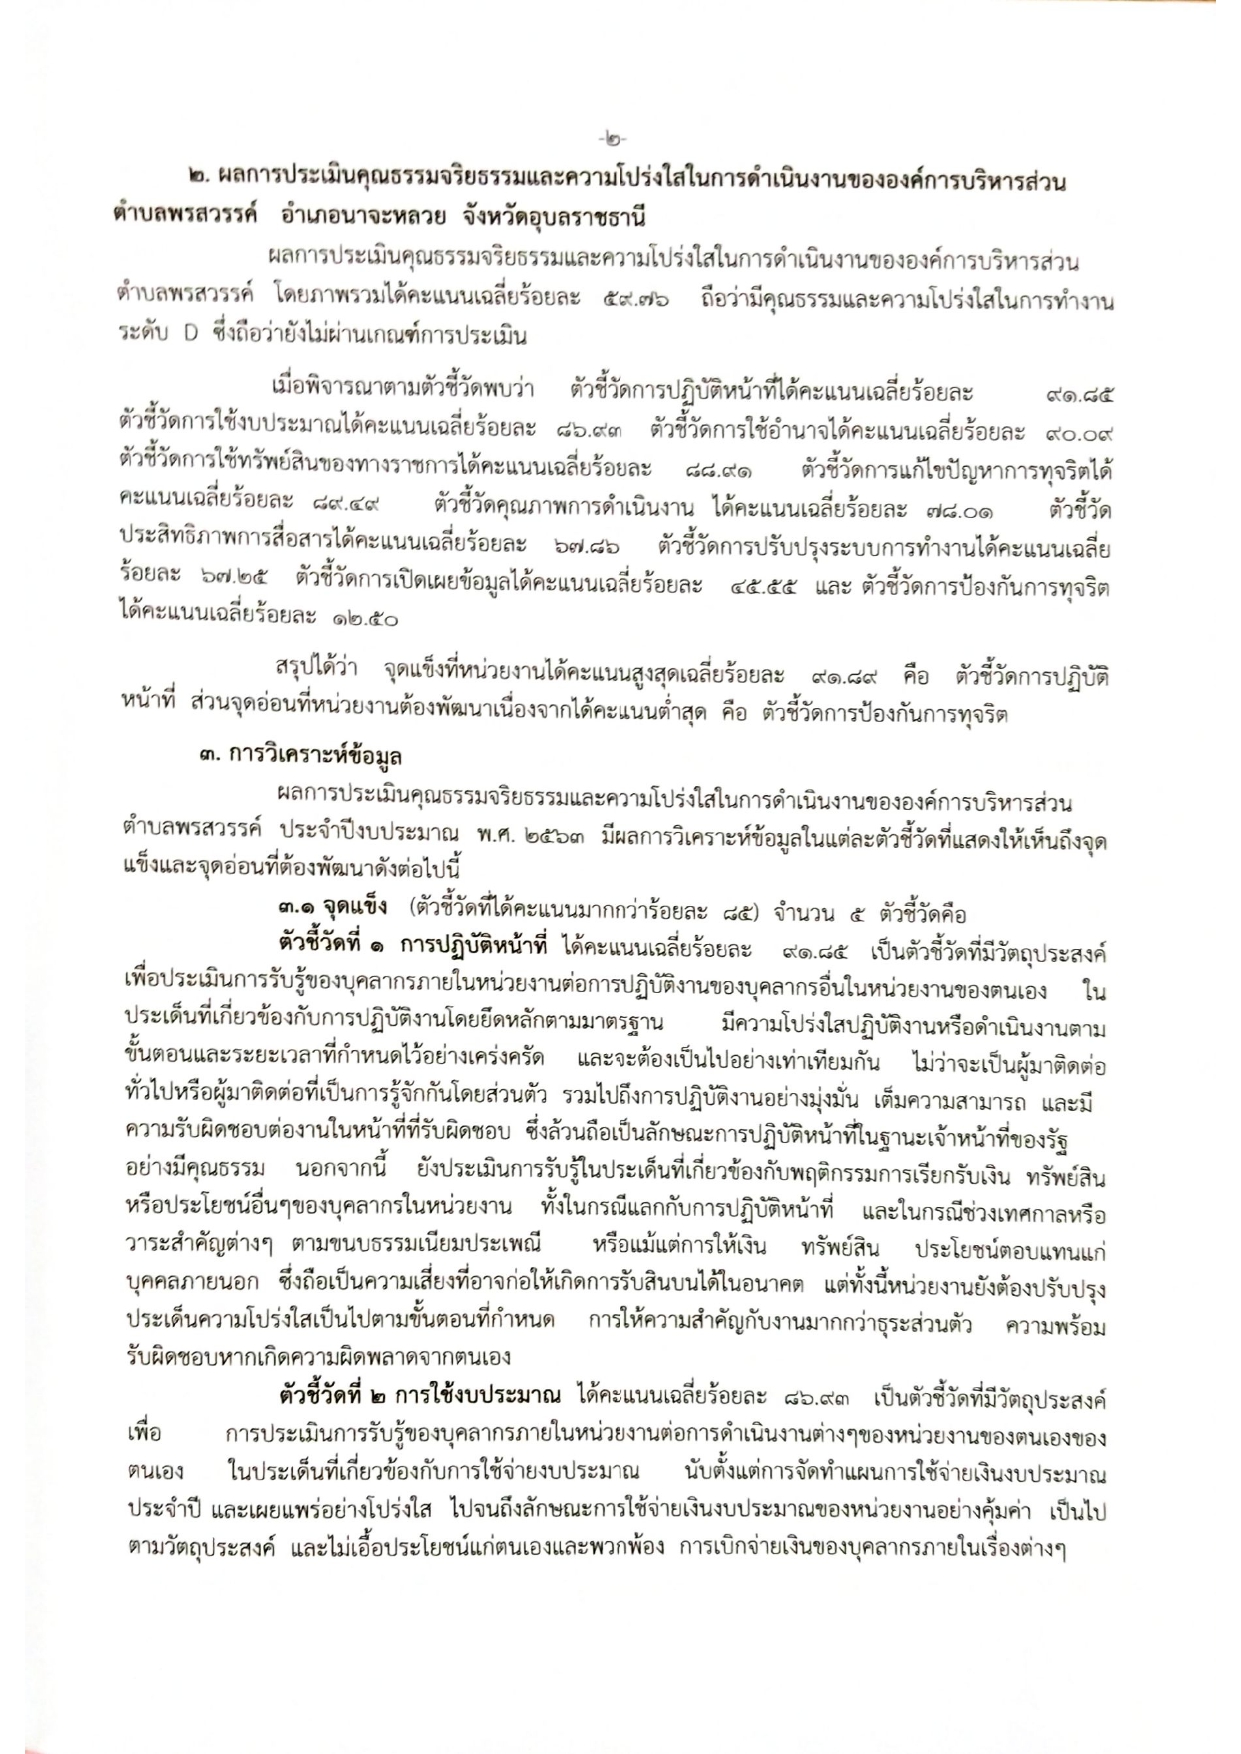 -๒-
๒. ผลการประเมินคุณธรรมจริยธรรมและความโปร่งใสในการดำเนินงานขององค์การบริหารส่วน
ตำบลพรสวรรค์ อำเภอนาจะหลวย จังหวัดอุบลราชธานี
ผลการประเมินคุณธรรมจริยธรรมและความโปร่งใสในการดำเนินงานขององค์การบริหารส่วน
ตำบลพรสวรรค์ โดยภาพรวมได้คะแนนเฉลี่ยร้อยละ ๕๙.๗๖ ถือว่ามีคุณธรรมและความโปร่งใสในการทำงาน
ระดับ D ซึ่งถือว่ายังไม่ผ่านเกณฑ์การประเมิน
เมื่อพิจารณาตามตัวชี้วัดพบว่า ตัวชี้วัดการปฏิบัติหน้าที่ได้คะแนนเฉลี่ยร้อยละ ๙๑.๘๕
ตัวชี้วัดการใช้งบประมาณได้คะแนนเฉลี่ยร้อยละ ๘๖.๙๓ ตัวชี้วัดการใช้อำนาจได้คะแนนเฉลี่ยร้อยละ ๙๐.๐๙
ตัวชี้วัดการใช้ทรัพย์สินของทางราชการได้คะแนนเฉลี่ยร้อยละ ๘๘.๙๑ ตัวชี้วัดการแก้ไขปัญหาการทุจริตได้
คะแนนเฉลี่ยร้อยละ ๘๙.๔๙ ตัวชี้วัดคุณภาพการดำเนินงาน ได้คะแนนเฉลี่ยร้อยละ ๗๘.๐๑ ตัวชี้วัด
ประสิทธิภาพการสื่อสารได้คะแนนเฉลี่ยร้อยละ ๖๗.๘๖ ตัวชี้วัดการปรับปรุงระบบการทำงานได้คะแนนเฉลี่ย
ร้อยละ ๖๗.๒๕ ตัวชี้วัดการเปิดเผยข้อมูลได้คะแนนเฉลี่ยร้อยละ ๔๕.๕๕ และ ตัวชี้วัดการป้องกันการทุจริต
ได้คะแนนเฉลี่ยร้อยละ ๑๒.๕๐
สรุปได้ว่า จุดแข็งที่หน่วยงานได้คะแนนสูงสุดเฉลี่ยร้อยละ ๙๑.๘๙ คือ ตัวชี้วัดการปฏิบัติ
หน้าที่ ส่วนจุดอ่อนที่หน่วยงานต้องพัฒนาเนื่องจากได้คะแนนต่ำสุด คือ ตัวชี้วัดการป้องกันการทุจริต
๓. การวิเคราะห์ข้อมูล
ผลการประเมินคุณธรรมจริยธรรมและความโปร่งใสในการดำเนินงานขององค์การบริหารส่วน
ตำบลพรสวรรค์ ประจำปีงบประมาณ พ.ศ. ๒๕๖๓ มีผลการวิเคราะห์ข้อมูลในแต่ละตัวชี้วัดที่แสดงให้เห็นถึงจุด
แข็งและจุดอ่อนที่ต้องพัฒนาดังต่อไปนี้
๓.๑ จุดแข็ง (ตัวชี้วัดที่ได้คะแนนมากกว่าร้อยละ ๘๕) จำนวน ๕ ตัวชี้วัดคือ
ตัวชี้วัดที่ ๑ การปฏิบัติหน้าที่ ได้คะแนนเฉลี่ยร้อยละ ๙๑.๘๕ เป็นตัวชี้วัดที่มีวัตถุประสงค์
เพื่อประเมินการรับรู้ของบุคลากรภายในหน่วยงานต่อการปฏิบัติงานของบุคลากรอื่นในหน่วยงานของตนเอง ใน
ประเด็นที่เกี่ยวข้องกับการปฏิบัติงานโดยยึดหลักตามมาตรฐาน มีความโปร่งใสปฏิบัติงานหรือดำเนินงานตาม
ขั้นตอนและระยะเวลาที่กำหนดไว้อย่างเคร่งครัด และจะต้องเป็นไปอย่างเท่าเทียมกัน ไม่ว่าจะเป็นผู้มาติดต่อ
ทั่วไปหรือผู้มาติดต่อที่เป็นการรู้จักกันโดยส่วนตัว รวมไปถึงการปฏิบัติงานอย่างมุ่งมั่น เต็มความสามารถ และมี
ความรับผิดชอบต่องานในหน้าที่ที่รับผิดชอบ ซึ่งล้วนถือเป็นลักษณะการปฏิบัติหน้าที่ในฐานะเจ้าหน้าที่ของรัฐ
อย่างมีคุณธรรม นอกจากนี้ ยังประเมินการรับรู้ในประเด็นที่เกี่ยวข้องกับพฤติกรรมการเรียกรับเงิน ทรัพย์สิน
หรือประโยชน์อื่นๆของบุคลากรในหน่วยงาน ทั้งในกรณีแลกกับการปฏิบัติหน้าที่ และในกรณีช่วงเทศกาลหรือ
วาระสำคัญต่างๆ ตามขนบธรรมเนียมประเพณี หรือแม้แต่การให้เงิน ทรัพย์สิน ประโยชน์ตอบแทนแก่
บุคคลภายนอก ซึ่งถือเป็นความเสี่ยงที่อาจก่อให้เกิดการรับสินบนได้ในอนาคต แต่ทั้งนี้หน่วยงานยังต้องปรับปรุง
ประเด็นความโปร่งใสเป็นไปตามขั้นตอนที่กำหนด การให้ความสำคัญกับงานมากกว่าธุระส่วนตัว ความพร้อม
รับผิดชอบหากเกิดความผิดพลาดจากตนเอง
ตัวชี้วัดที่ ๒ การใช้งบประมาณ ได้คะแนนเฉลี่ยร้อยละ ๘๖.๙๓ เป็นตัวชี้วัดที่มีวัตถุประสงค์
เพื่อ การประเมินการรับรู้ของบุคลากรภายในหน่วยงานต่อการดำเนินงานต่างๆของหน่วยงานของตนเองของ
ตนเอง ในประเด็นที่เกี่ยวข้องกับการใช้จ่ายงบประมาณ นับตั้งแต่การจัดทำแผนการใช้จ่ายเงินงบประมาณ
ประจำปี และเผยแพร่อย่างโปร่งใส ไปจนถึงลักษณะการใช้จ่ายเงินงบประมาณของหน่วยงานอย่างคุ้มค่า เป็นไป
ตามวัตถุประสงค์ และไม่เอื้อประโยชน์แก่ตนเองและพวกพ้อง การเบิกจ่ายเงินของบุคลากรภายในเรื่องต่างๆ